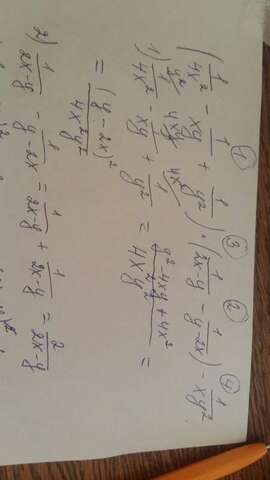 ① ③ ② ④
(1/4x² - 1/xy + 1/y²) · (1/2x-y - 1/y-2x) - 1/xy²
1) 1/4x² - 1/xy + 1/y² = y² - 4xy + 4x²/4x²y² =
= (y - 2x)²/4x²y²
2) 1/2x-y - 1/y-2x = 1/2x-y + 1/2x-y = 2/2x-y